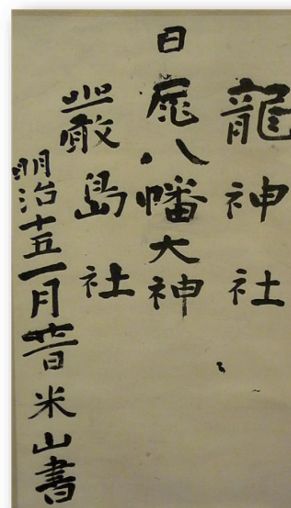 龍神社
日尾八幡大神
嚴島社
明治十五一月廿日米山書